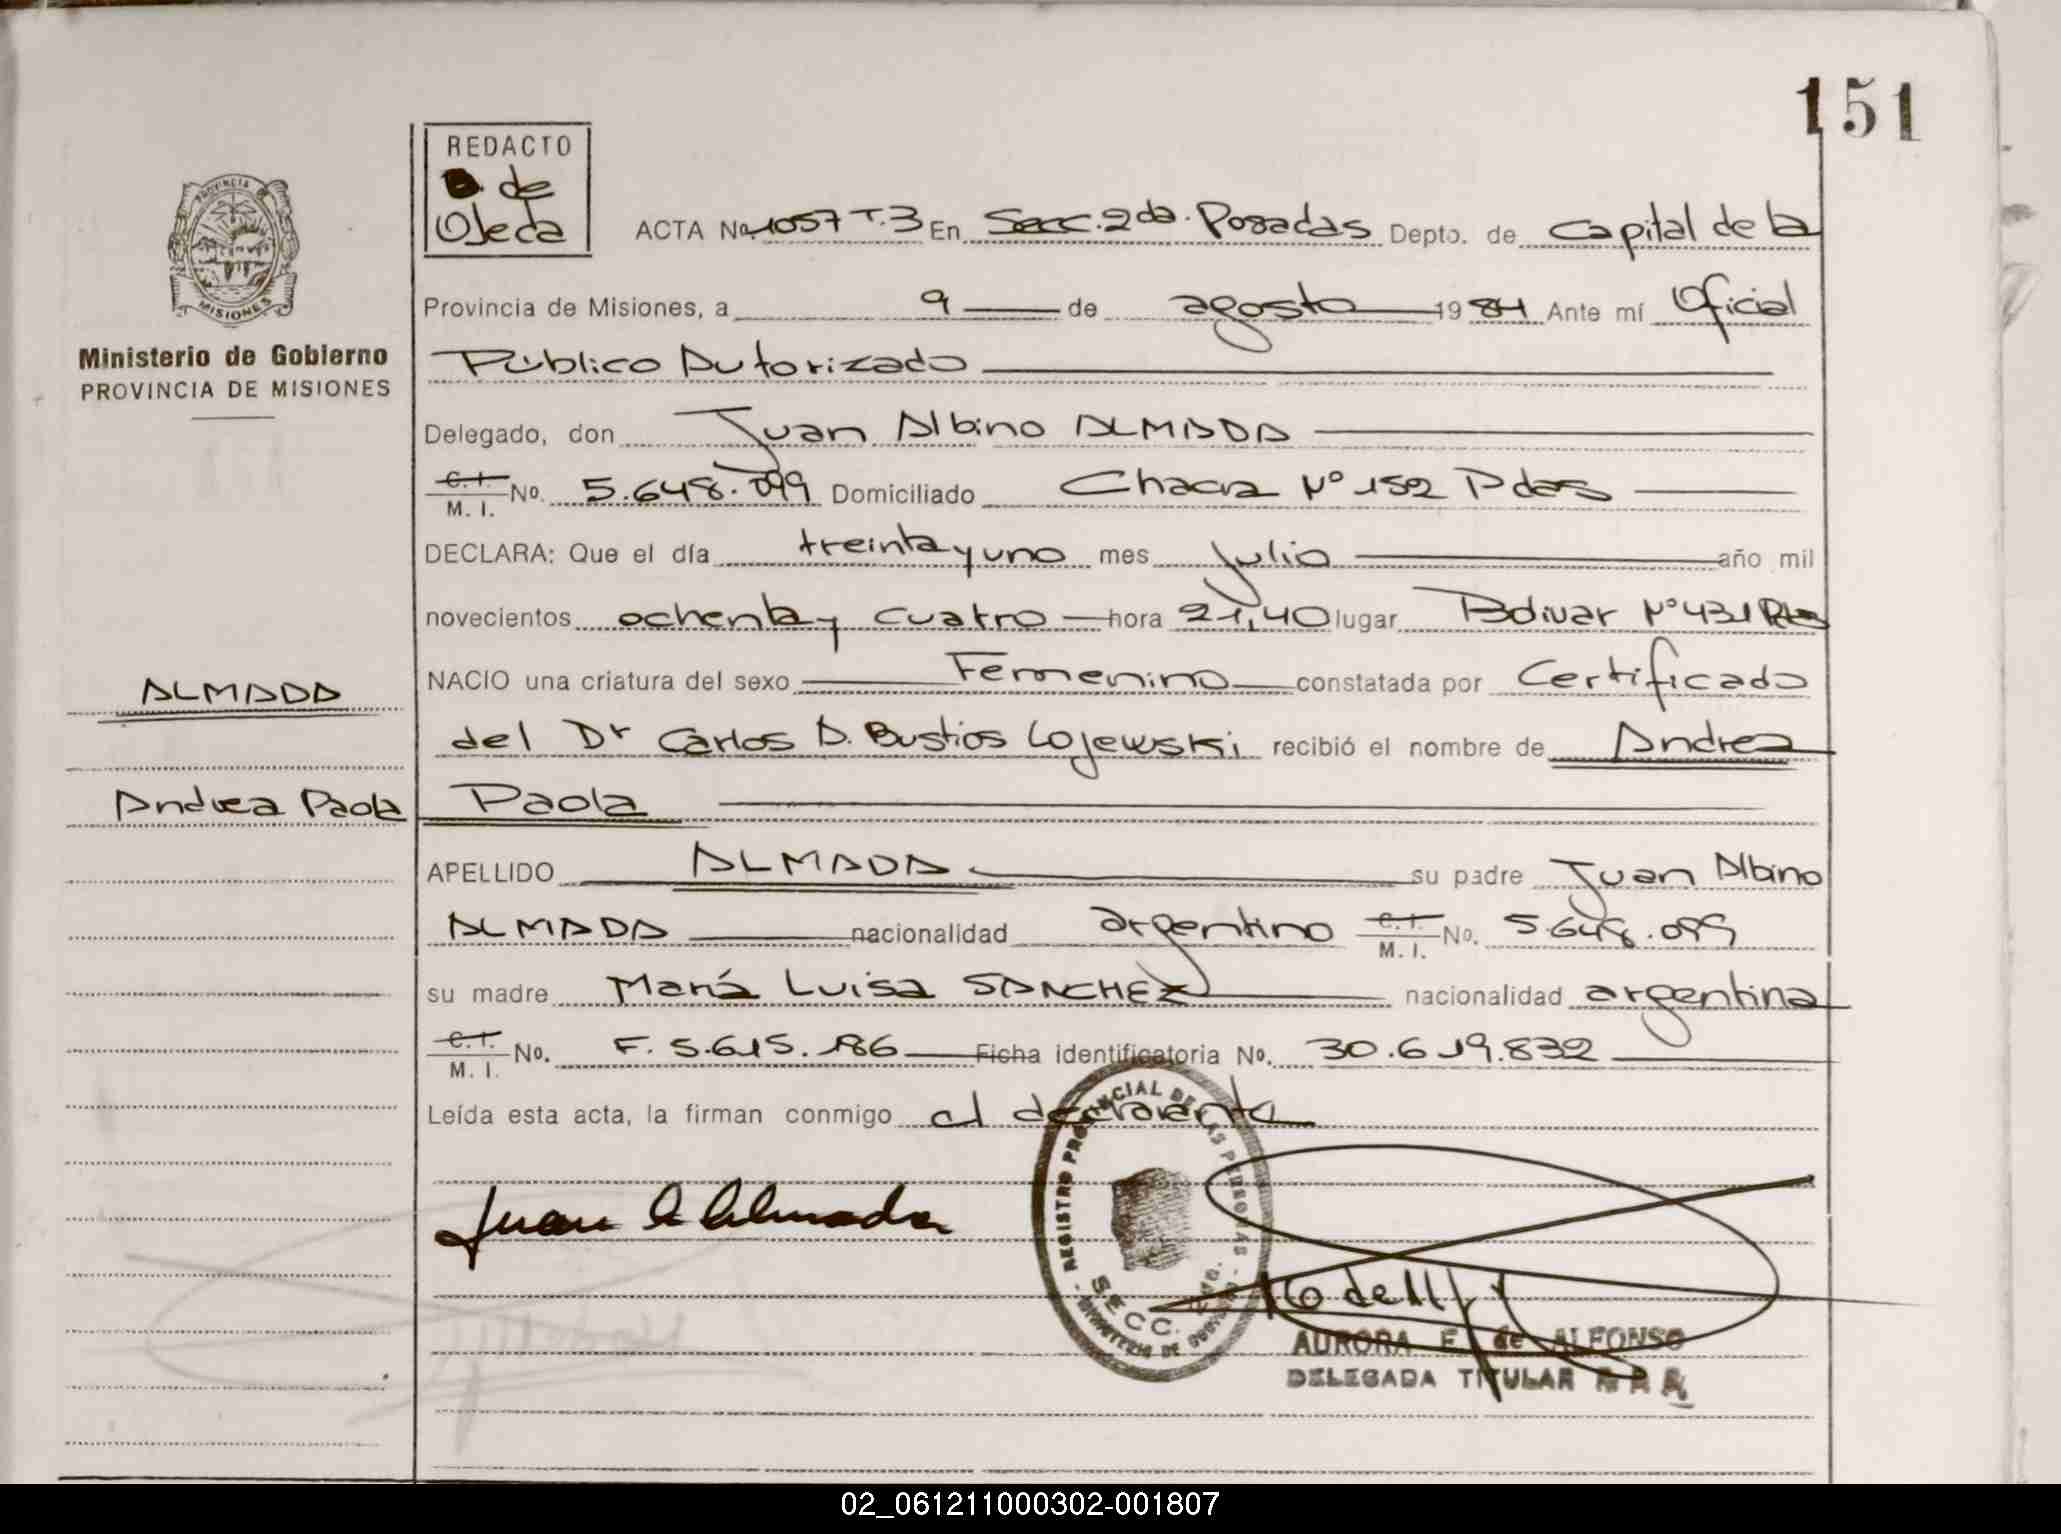 151
REDACTO
de
Ojeda
ACTA No. 1057 T.3 En Secc. 2da. Posadas Depto. de Capital de la
PROVINCIA DE
MISIONES
Provincia de Misiones, a 9 de agosto 1984 Ante mí Oficial
Ministerio de Gobierno
PROVINCIA DE MISIONES
Público Autorizado
Delegado, don Juan Albino ALMADA
C.I. M. I. No. 5.648.099 Domiciliado Chacra Nº 152 Pdas
DECLARA: Que el día treinta y uno mes julio año mil
novecientos ochenta y cuatro hora 21,40 lugar Bolivar Nº 431 Pdas
ALMADA
NACIO una criatura del sexo Femenino constatada por Certificado
del Dr Carlos A. Bustios Lojewski recibió el nombre de Andrea
Andrea Paola
Paola
APELLIDO ALMADA su padre Juan Albino
ALMADA nacionalidad argentino C.I. M. I. No. 5.648.099
su madre María Luisa SANCHEZ nacionalidad argentina
C.I. M. I. No. F. 5.615.186 Ficha identificatoria No. 30.619.832
Leída esta acta, la firman conmigo el declarante
Juan A Almada
REGISTRO PROVINCIAL DE LAS PERSONAS
SECC. 2da.
MINISTERIO DE GOBIERNO
AURORA E. de ALFONSO
DELEGADA TITULAR
02_061211000302-001807